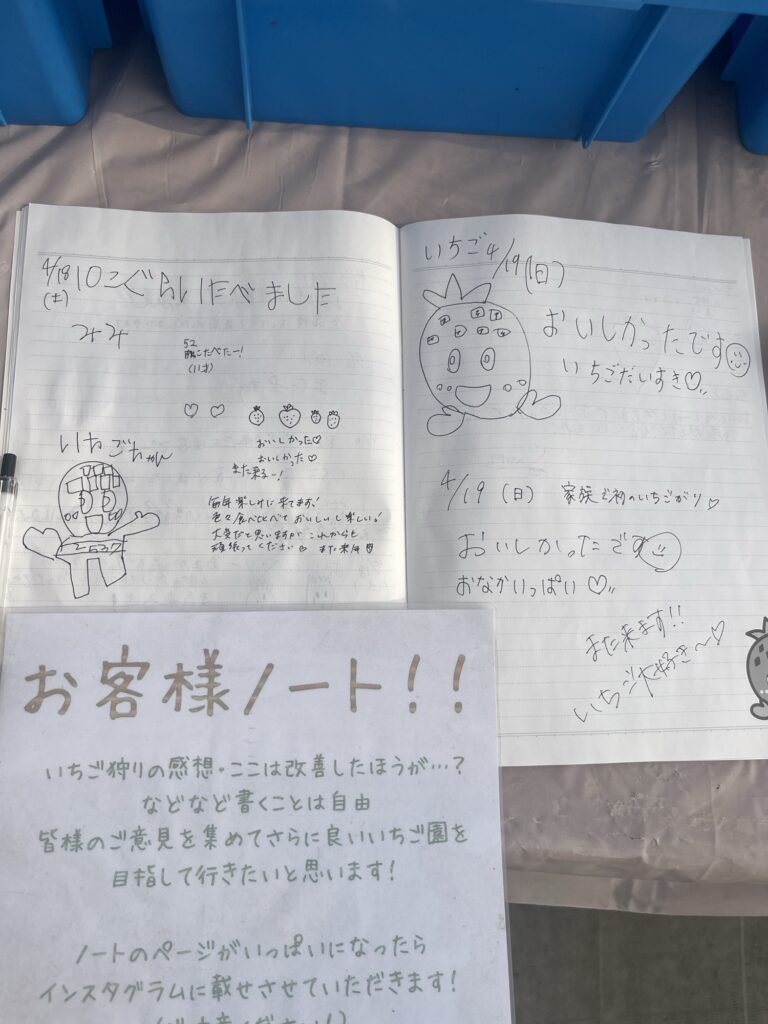 4/18
(土)
10こぐらいたべました
みみ
52
こたべたー!
(11才)
おいしかった♡
おいしかった♡
また来るー!
いちごちゃん
毎年楽しみに来てます!
色々食べ比べておいしいし楽しい!
大変だと思いますが これからも
頑張ってください♡ また来年
いちご 4/19(日)
おいしかったです
いちごだいすき♡
4/19 (日) 家族で初のいちごがり♡
おいしかったです
おなかいっぱい♡
また来ます!!
いちご大好き〜♡
お客様ノート!!
いちご狩りの感想・ここは改善したほうが…?
などなど書くことは自由
皆様のご意見を集めてさらに良いいちご園を
目指して行きたいと思います!
ノートのページがいっぱいになったら
インスタグラムに載せさせていただきます!